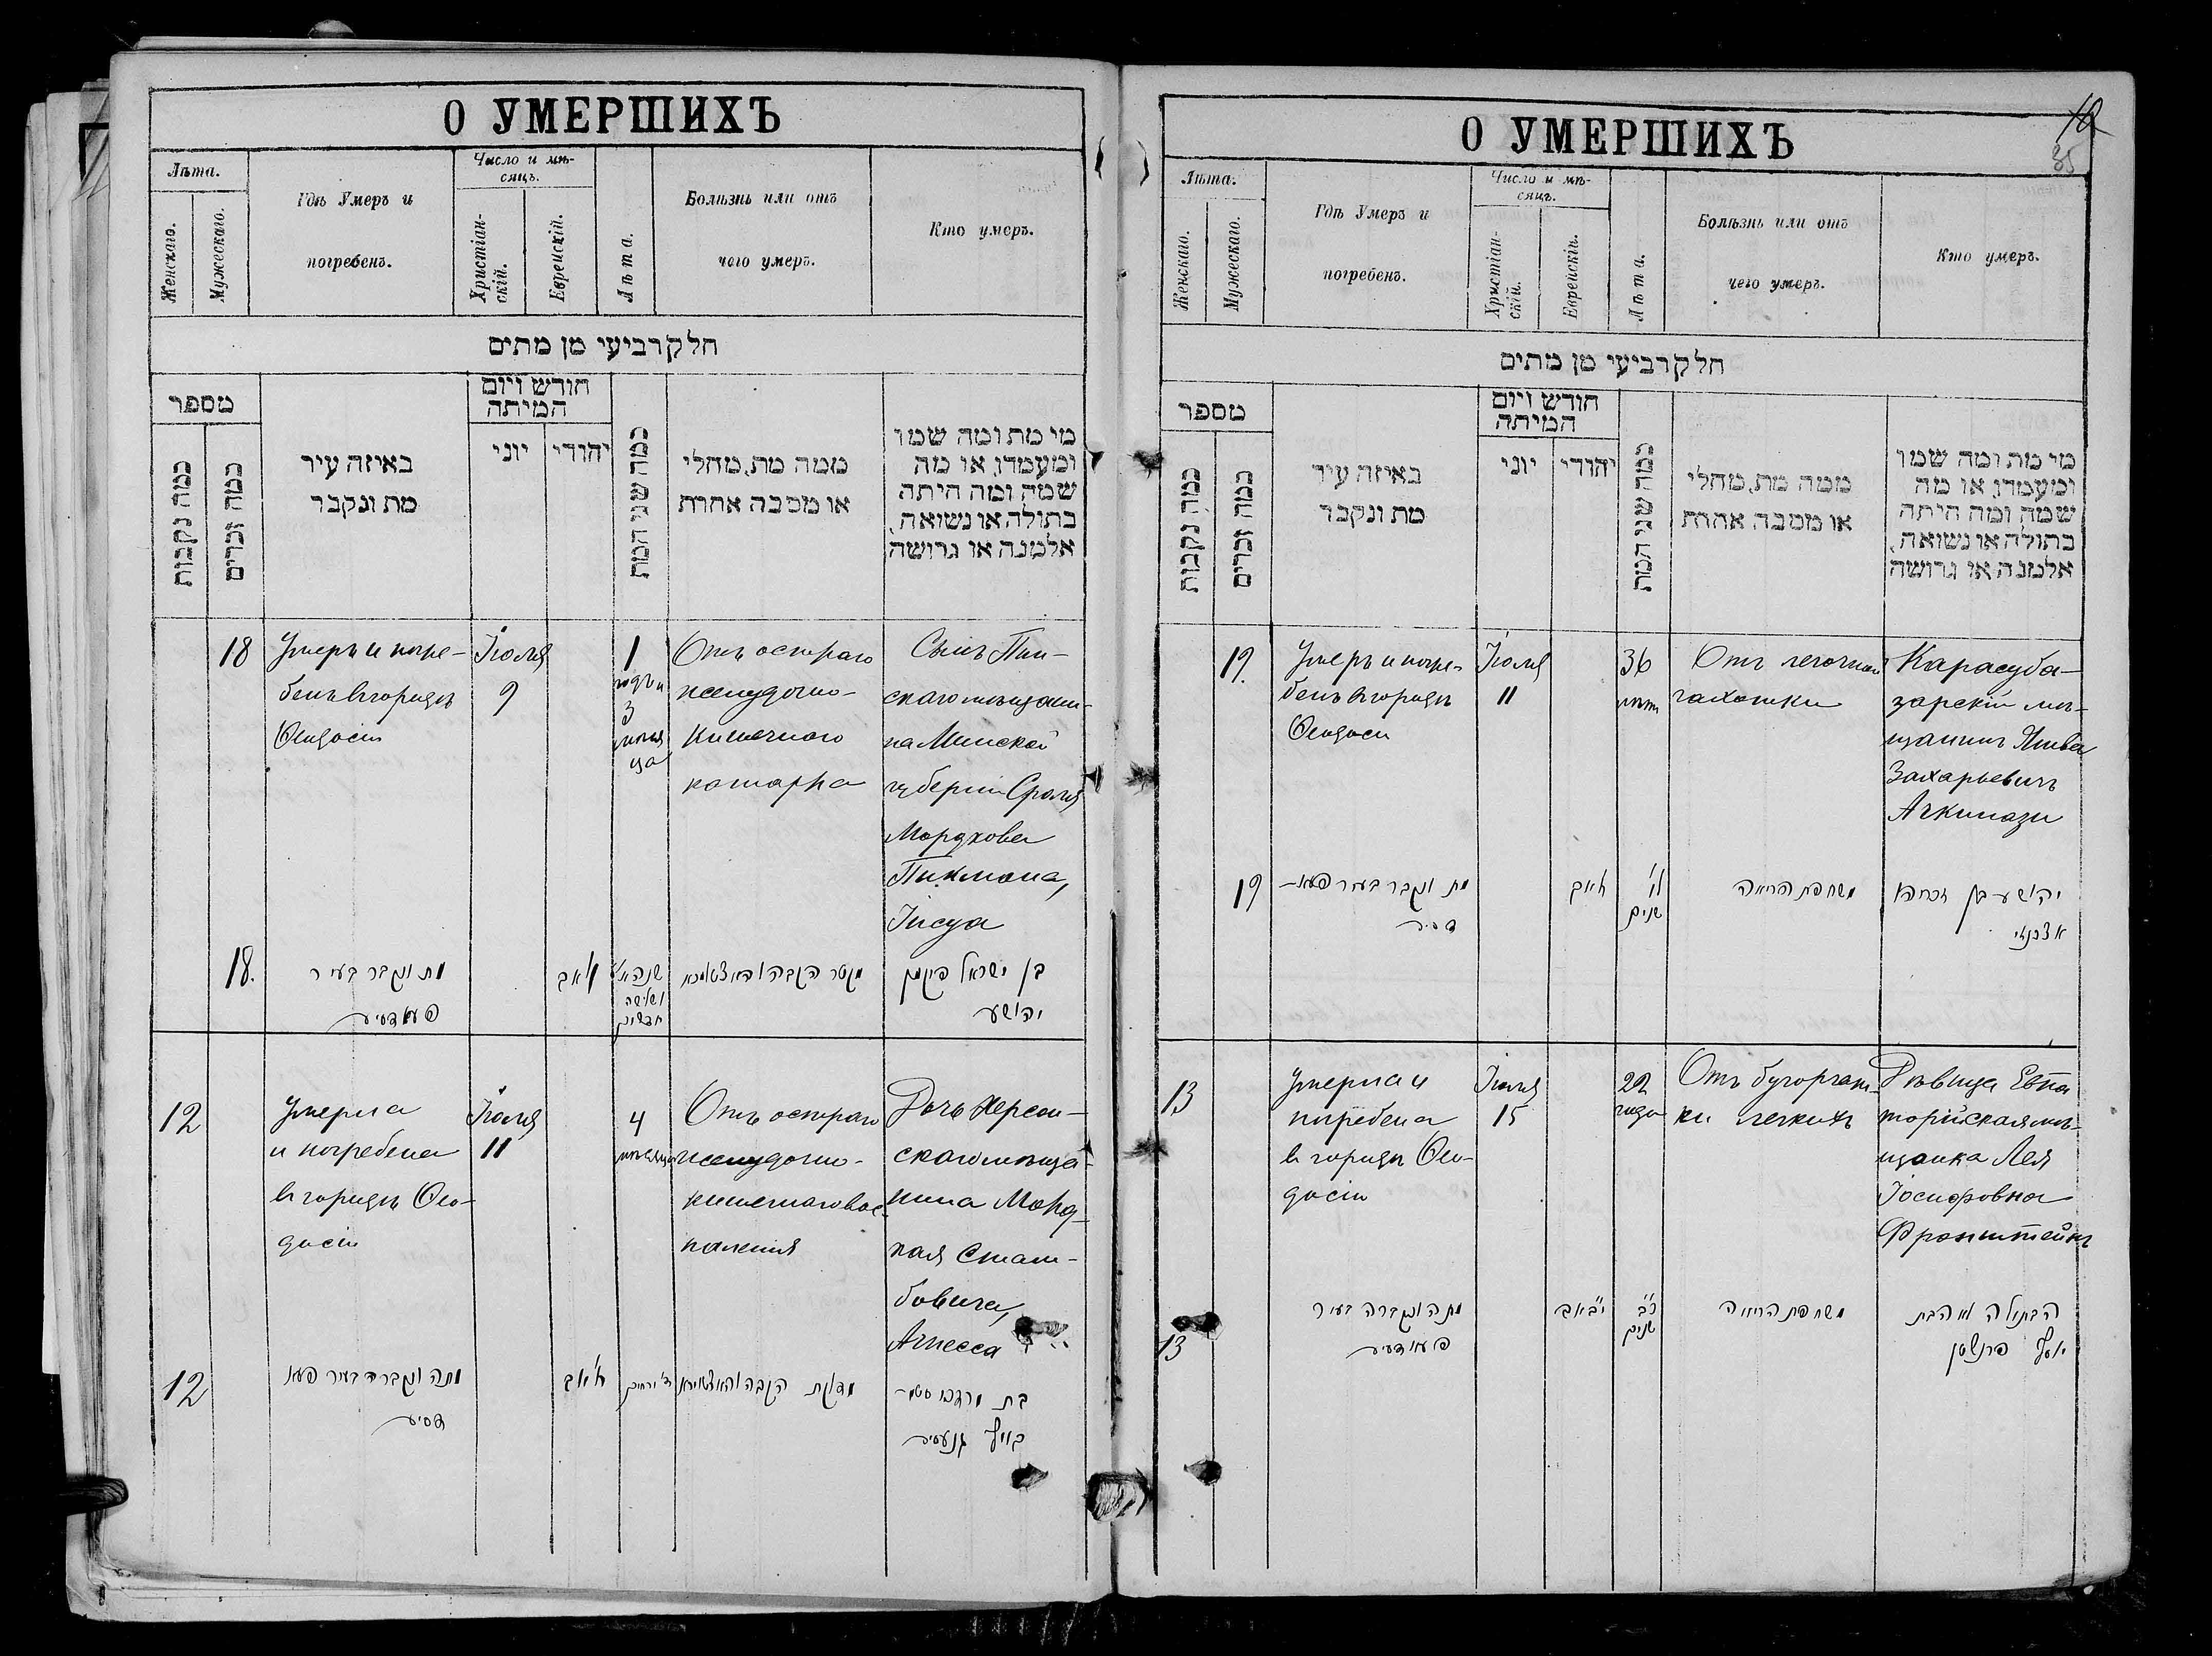 О УМЕРШИХЪ
Лѣта.
Женскаго.
Мужескаго.
Гдѣ Умеръ и
погребенъ.
Число и мѣ-
сяцъ.
Христіан-
скій.
Еврейскій.
Лѣта.
Болѣзнь или отъ
чего умеръ.
Кто умеръ.
חלק רביעי מן מתים
מספר
כמה נקבות
כמה זכרים
באיזה עיר
מת ונקבר
חודש ויום
המיתה
יוני
יהודי
כמה שני המת
ממה מת, מחלי
או מסבה אחרת
מי מת ומה שמו
ומעמדו, או מה
שמה ומה היתה
בתולה או נשואה,
אלמנה או גרושה
18
Умеръ и погре-
бенъ въ городѣ
Ѳеодосіи
Іюля
9
1
годъ и
3
мѣся
ца
Отъ остраго
желудочно-
кишечнаго
катарра
Сынъ Пин-
скаго мѣщани-
на Минской
губерніи Сроля
Мордхова
Пикмана,
Іисуа
18.
מת ונקבר בעיר
פעאדסיע
אב
שנה א'
ושלשה
חדשים
מקטר הקבה והאצטומכא
בן ישראל פיקמן
יהושע
12
Умерла
и погребена
въ городѣ Ѳео-
досіи
Іюля
11
4
мѣсяца
Отъ остраго
желудочно-
кишечнаго вос-
паленія
Дочь Херсон-
скаго мѣща-
нина Морд-
хая Стам-
бовича,
Агнесса
12
מתה ונקברה בעיר פעא
דסיע
אב
ד' ירחים
מדלקת הקבה והאצטומכא
בת מרדכי סטמ-
בוויץ אגנעסיע
О УМЕРШИХЪ
19
35
Лѣта.
Женскаго.
Мужескаго.
Гдѣ Умеръ и
погребенъ.
Число и мѣ-
сяцъ.
Христіан-
скій.
Еврейскій.
Лѣта.
Болѣзнь или отъ
чего умеръ.
Кто умеръ.
חלק רביעי מן מתים
מספר
כמה נקבות
כמה זכרים
באיזה עיר
מת ונקבר
חודש ויום
המיתה
יוני
יהודי
כמה שני המת
ממה מת, מחלי
או מסבה אחרת
מי מת ומה שמו
ומעמדו, או מה
שמה ומה היתה
בתולה או נשואה,
אלמנה או גרושה
19.
Умеръ и погре-
бенъ въ городѣ
Ѳеодосіи
Іюля
11
36
лѣтъ
Отъ легочной
чахотки
Карасуба-
зарскій мѣ-
щанинъ Яшва
Захарьевичъ
Ачкинази
19
מת ונקבר בעיר פעא-
דסיע
אב
ל"ו
שנים
משחפת הריאה
יהושע בן זכריה
אצכנזי
13
Умерла и
погребена
въ городѣ Ѳео-
досіи
Іюля
15
22
года
Отъ бугорчат-
ки легкихъ
Дѣвица Евпа
торійская мѣ-
щанка Лея
Іосифовна
Фронштейнъ
13
מתה ונקברה בעיר
פעאדסיע
י"ב אב
כ"ב
שנים
משחפת הריאה
הבתולה לאה בת
יוסף פרנשטין